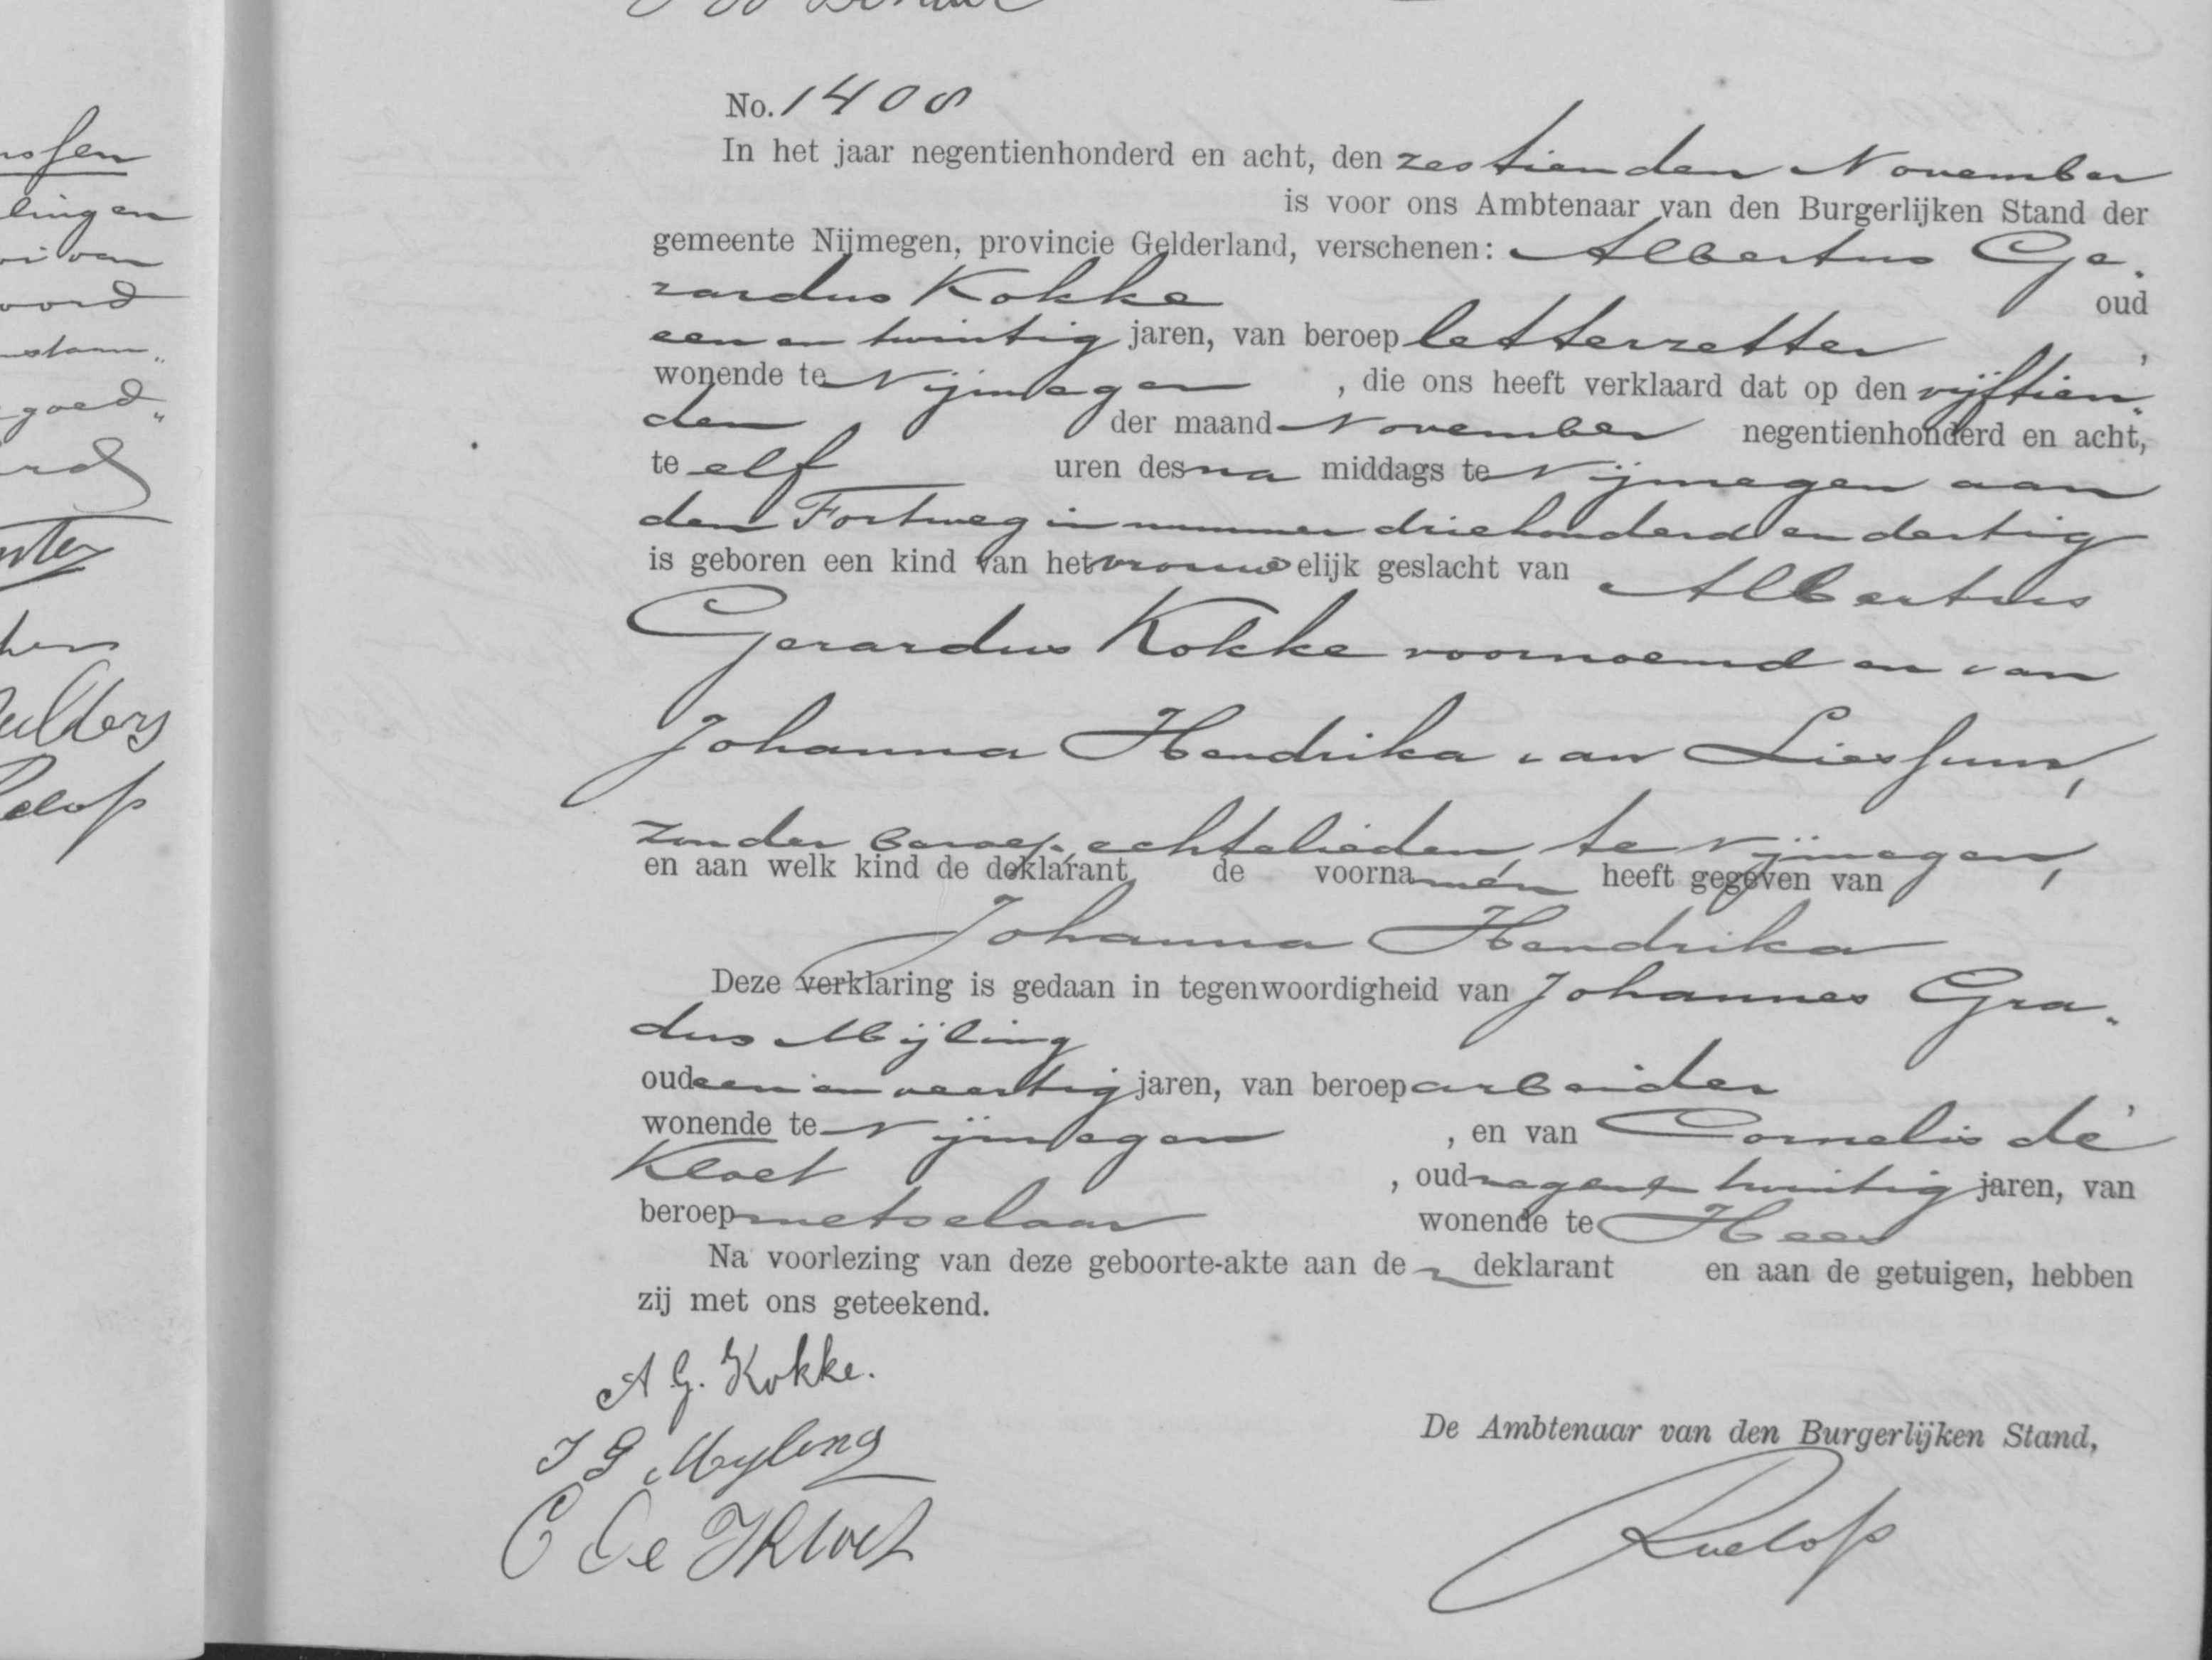 No. 1408
In het jaar negentienhonderd en acht, den zestienden November
is voor ons Ambtenaar van den Burgerlijken Stand der
gemeente Nijmegen, provincie Gelderland, verschenen: Albertus Ge-
rardus Kokke oud
een en twintig jaren, van beroep letterzetter,
wonende te Nijmegen, die ons heeft verklaard dat op den vijftien-
den der maand November negentienhonderd en acht,
te elf uren des na middags te Nijmegen aan
den Fortweg in nummer driehonderd en dertig
is geboren een kind van het vrouwelijk geslacht van Albertus
Gerardus Kokke voornoemd en van
Johanna Hendrika van Liessum,
zonder beroep, echtelieden, te Nijmegen,
en aan welk kind de deklarant de voornamen heeft gegeven van
Johanna Hendrika
Deze verklaring is gedaan in tegenwoordigheid van Johannes Gra-
dus Mijling
oud een en veertig jaren, van beroep arbeider,
wonende te Nijmegen, en van Cornelis de
Kloet, oud negen en twintig jaren, van
beroep metselaar wonende te Hees
Na voorlezing van deze geboorte-akte aan de deklarant en aan de getuigen, hebben
zij met ons geteekend.
A G. Kokke.
J G Myling
C de Kloet
De Ambtenaar van den Burgerlijken Stand,
Roelofs